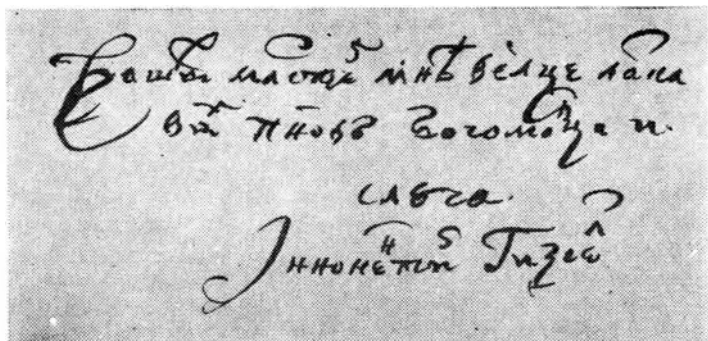 Вашых млстей мнѣ велце ласка
вых пновъ богомолца и.
слуга.
Іннокентій Гизель